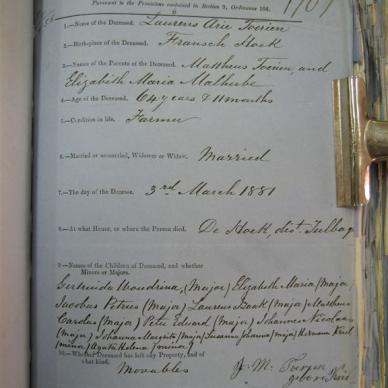 Pursuant to the Provisions contained in Section 9, Ordinance 104.
1.—Name of the Deceased. Laurens Arie Toerien
2.—Birthplace of the Deceased. Fransch Hoek
3.—Names of the Parents of the Deceased. Mattheus Toerien, and
Elizabeth Maria Malherbe
4.—Age of the Deceased. 64 years & 11 months
5.—Condition in life. Farmer
6.—Married or unmarried, Widower or Widow. Married
7.—The day of the Decease. 3rd March 1881
8.—At what House, or where the Person died. De Hoek, dist. Tulbagh
9.—Names of the Children of Deceased, and whether
Majors or Minors.
Gertruida Woudrina, (Major) Elizabeth Maria (Major
Jacobus Petrus (Major) Laurens Izaak (Major) Mattheus
Carolus (Major) Petrus Eduard (Major) Johannes Nicolaas
(Major) Johanna Margrita (Major) Susanna Johanna (Major) Hermanus
(minor) Agatha Helena (minor)
10.—Whether Deceased has left any Property, and of
what kind.
Movables